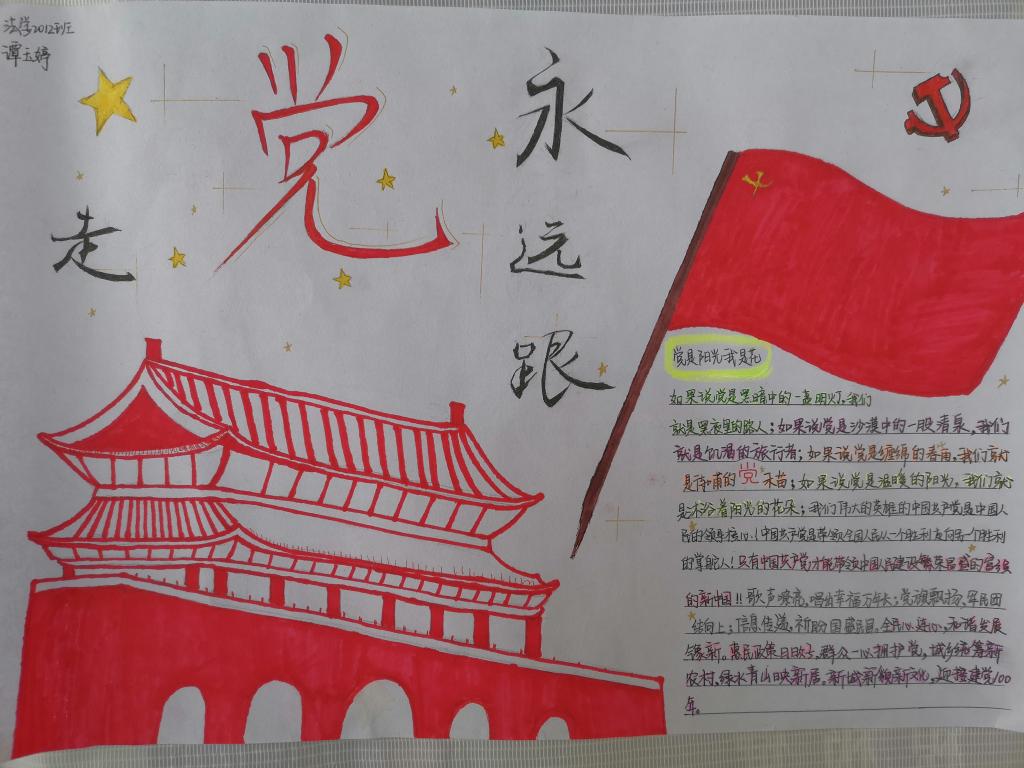 法学2012班
谭玉婷
永远跟
党
走
党是阳光我是花
如果说党是黑暗中的一盏明灯,我们
就是黑夜里的路人;如果说党是沙漠中的一股清泉,我们
就是饥渴的旅行者;如果说党是缠绵的春雨,我们就
是雨甫的党禾苗;如果说党是温暖的阳光,我们就
是沐浴着阳光的花朵;我们伟大的英雄的中国共产党是中国人
民的领导核心!中国共产党是带领全国人民从一个胜利走向另一个胜利
的掌舵人!只有中国共产党才能带领中国人民建设繁荣昌盛的富强
的新中国!!歌声嘹亮,唱出幸福万年长;党旗飘扬,军民团
结向上;信息传送,祈盼国盛民昌。全民心连心,和谐发展
创新。惠民政策日日好,群众一心拥护党,城乡统筹新
农村,绿水青山映新居。新城新貌新文化,迎接建党100
年。